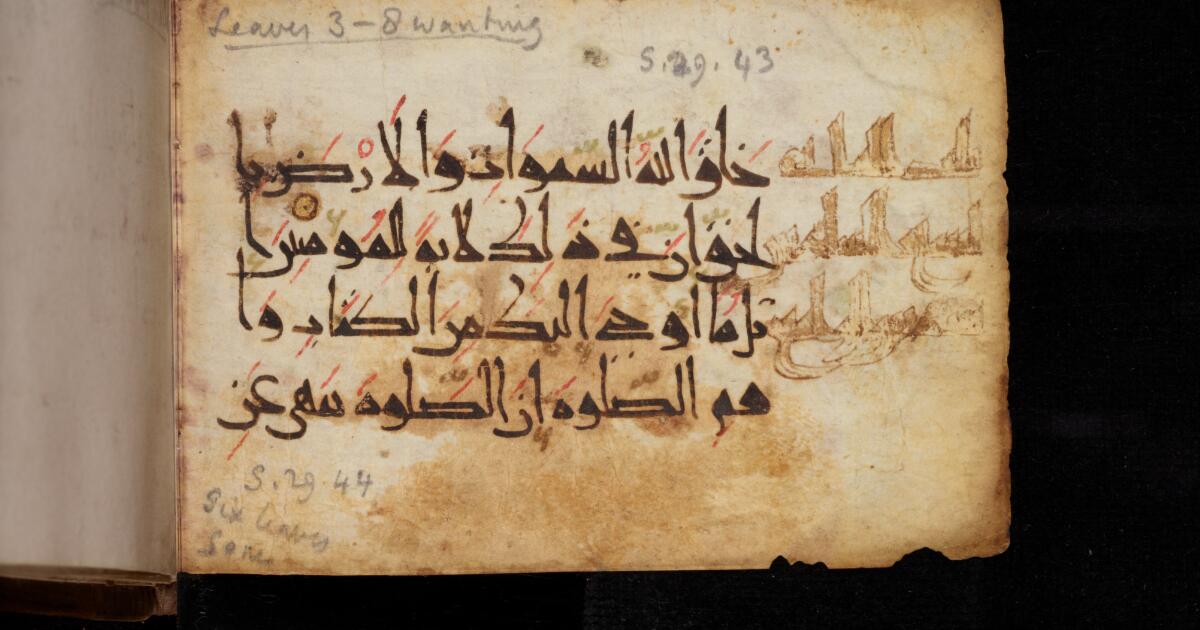 Leaves 3-8 wanting
S.29.43
خلق الله السموات والارض با
لحق ان في ذلك لاية للمومنين ا
تل ما اوحي اليك من الكتاب وا
قم الصلوه ان الصلوه تنهى عن
S.29.44
Six leaves